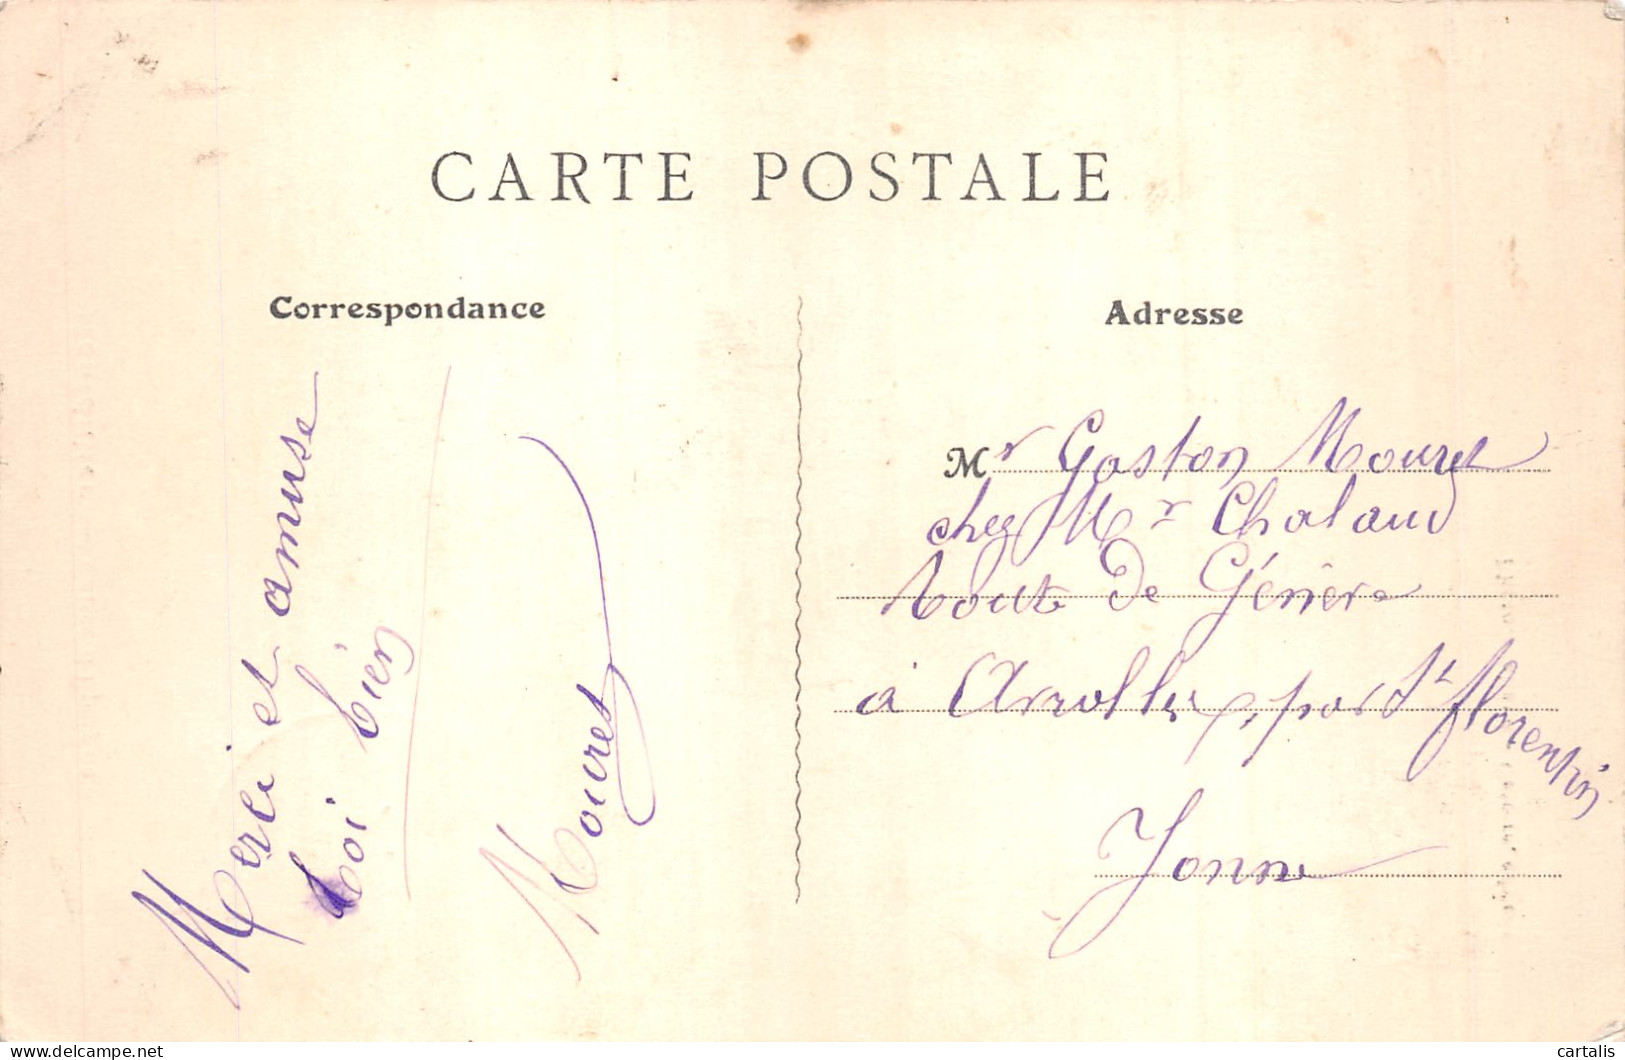 CARTE POSTALE
Correspondance
Merci et amuse
toi bien
Mouret
Adresse
Mr Gaston Mouret
chez Mr Chalaud
Route de Génève
à par St florentin
Yonne
delcampe.net
cartalis